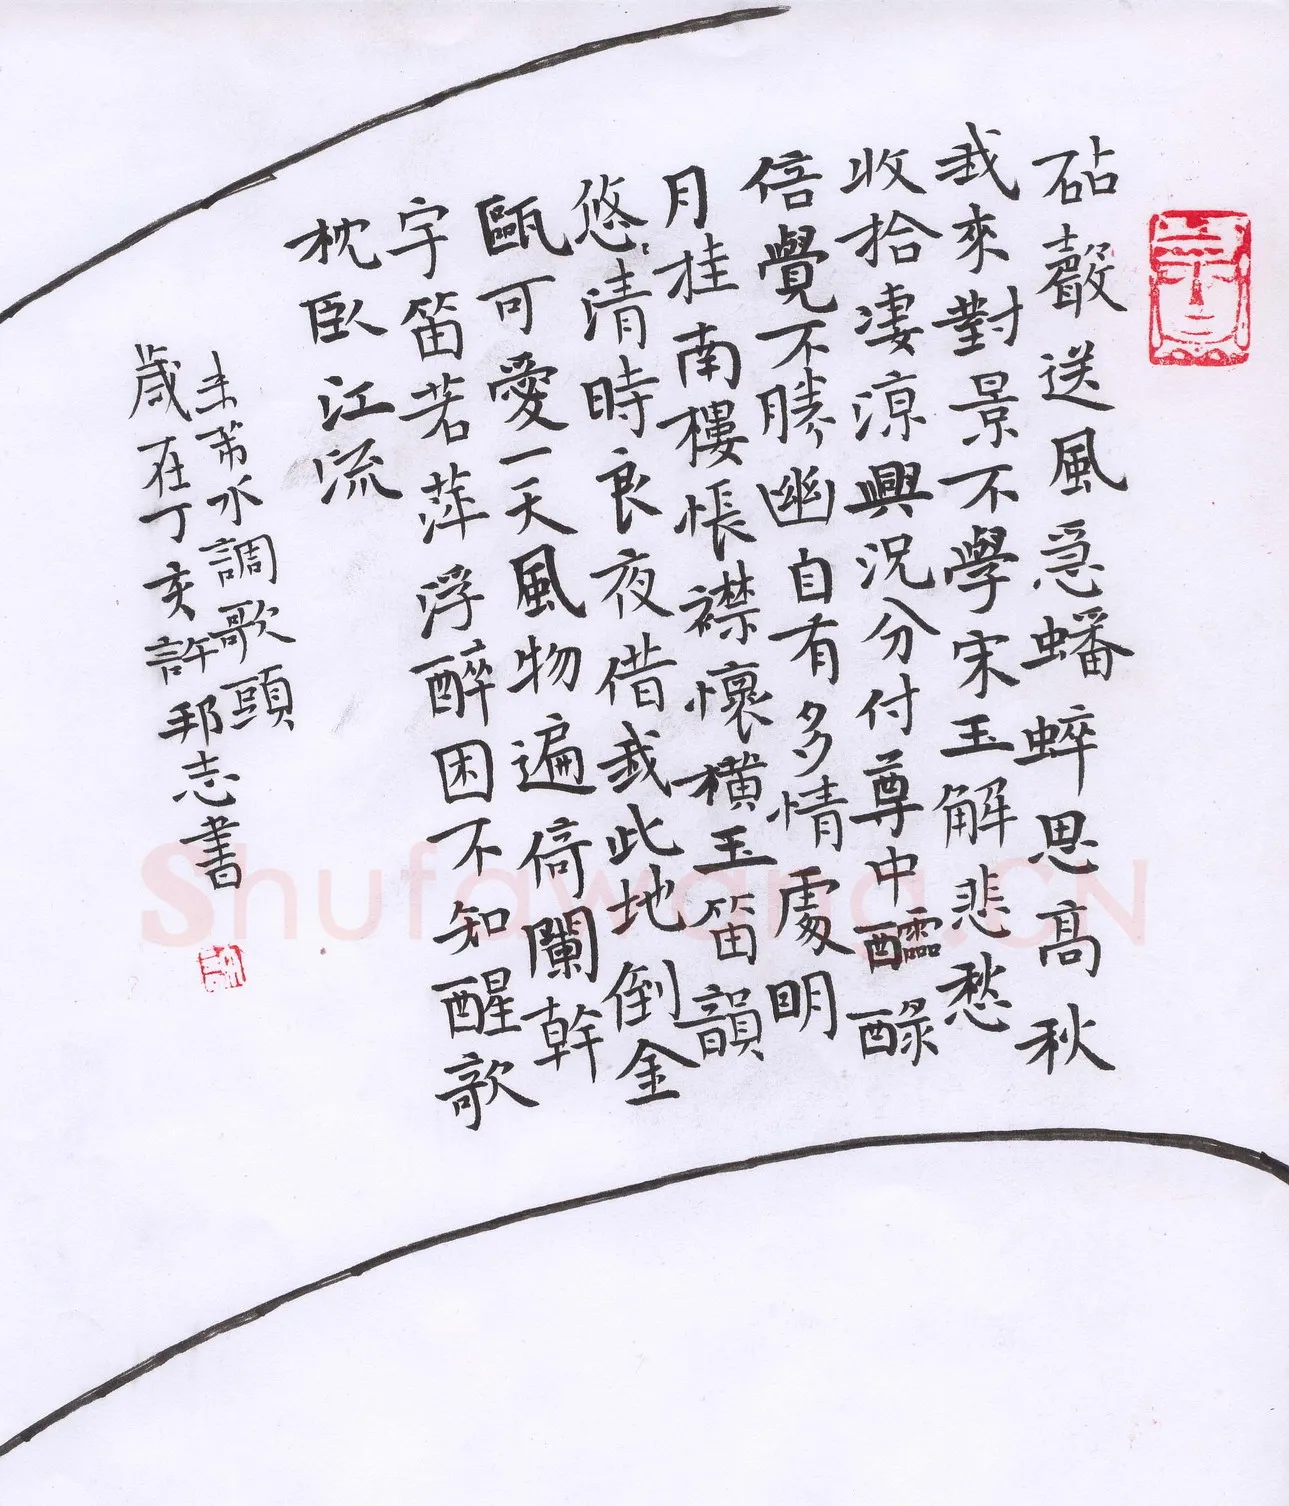 砧聲送風急蟠蟀思高秋
我來對景不學宋玉解悲愁
收拾淒涼興況分付尊中醽醁
倍覺不勝幽自有多情處明
月挂南樓悵襟懷橫玉笛韻
悠々清時良夜借我此地倒金
甌可愛一天風物遍倚闌幹
宇笛若萍浮醉困不知醒歌
枕臥江流
朱芾水調歌頭
歲在丁亥許邦志書
Shufawang.CN